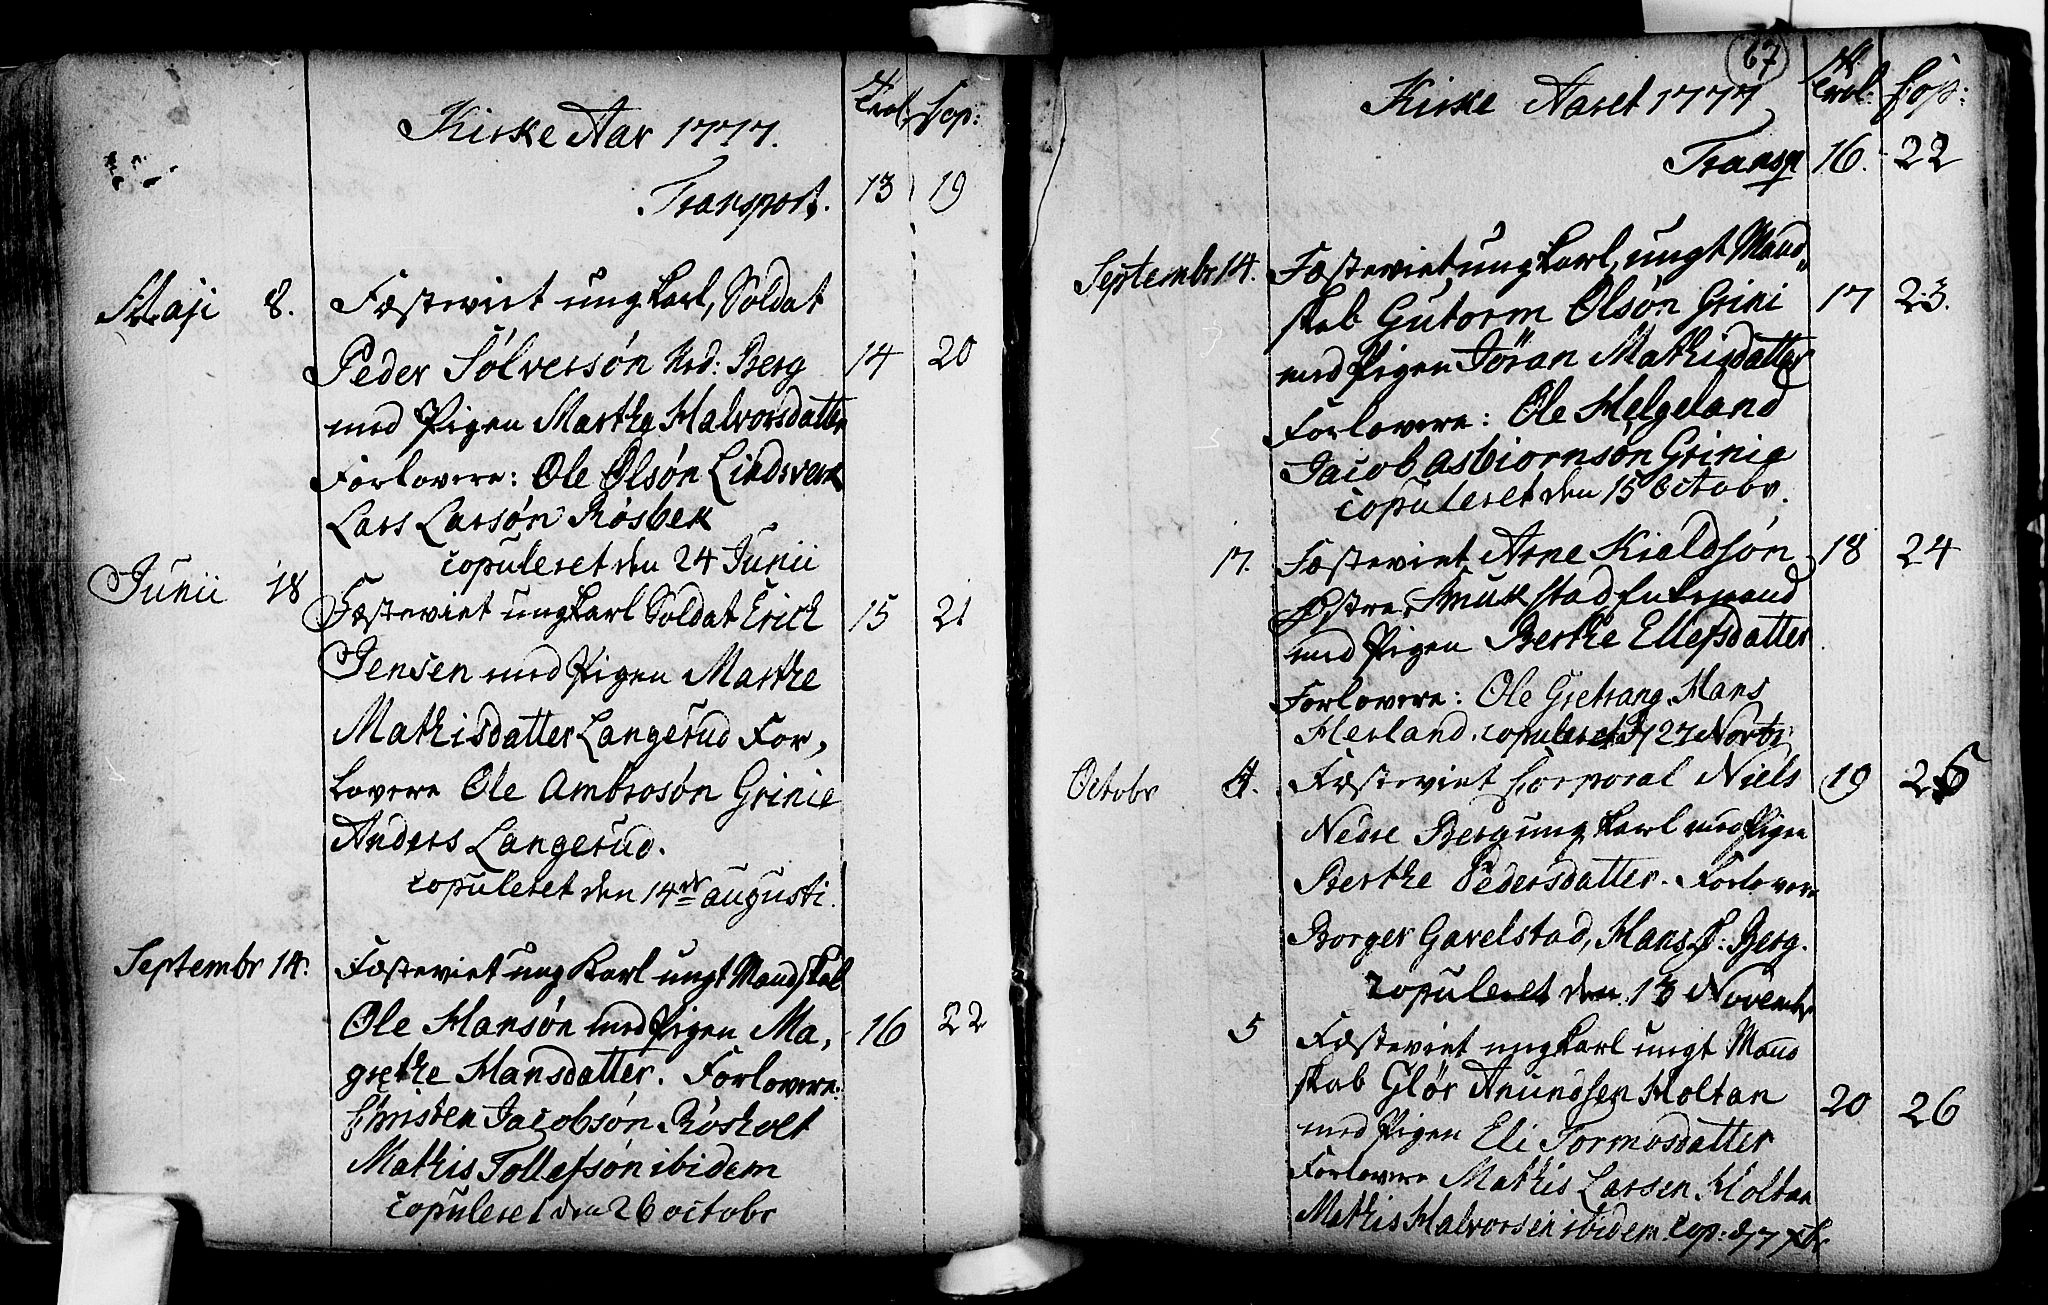 Kirke Aar 1777.
Trol. Cop:
Transport. 13 19
Maji 8. Fæsteviet ungkarl, Soldat
Peder Sölversön Nrd: Berg 14 20
med Pigen Marthe Halvorsdatter
Forlovere: Ole Olsön Lindsverk
Lars Larsön Rösbek
copuleret den 24 Junii
Junii 18 Fæsteviet ungkarl Soldat Erich 15 21
Jensen med Pigen Marthe
Mathisdatter Langerud For,
lovere Ole Ambrosön Grinie
Anders Langerud.
copuleret den 14de augusti.
Septembr 14. Fæsteviet ungkarl ungt Mandskab
Ole Hansön med Pigen Ma, 16 22
grethe Hansdatter. Forlovere:
Christen Jacobsön Rösholt
Mathis Tollefsön ibidem
copuleret den 26 octobr
67
Kirke Aaret 1777
Trol: Cop:
Transp 16. 22
Septembr 14. Fæsteviet ungkarl, ungt Mand,,
skab Gutorm Olsön Grini 17 23.
med Pigen Jöran Mathisdatter
Forlovere: Ole Helgeland
Jacob Asbiornsön Grinie
copuleret den 15 Octobr.
17. Fæsteviet Arne Kieldsön 18 24
Smukstad Enkemand
med Pigen Berthe Ellefsdatter
Forlovere: Ole Gretrang. Hans
Herland. copuleret d 27 Novbr
Octobr 4. Fæsteviet Corporal Niels 19 25
Nedre Berg ungkarl med Pigen
Berthe Pedersdatter. Forlovere
Borger Gavelstad, Hans P: Berg.
copuleret den 13 Novembr
5 Fæsteviet ungkarl ungt Mand
skab Glör Anundsen Holtan 20 26
med Pigen Eli Tormosdatter
Forlovere Mathis Larsen Holtan
Mathis Halvorsen ibidem. cop: d 7 Xbr